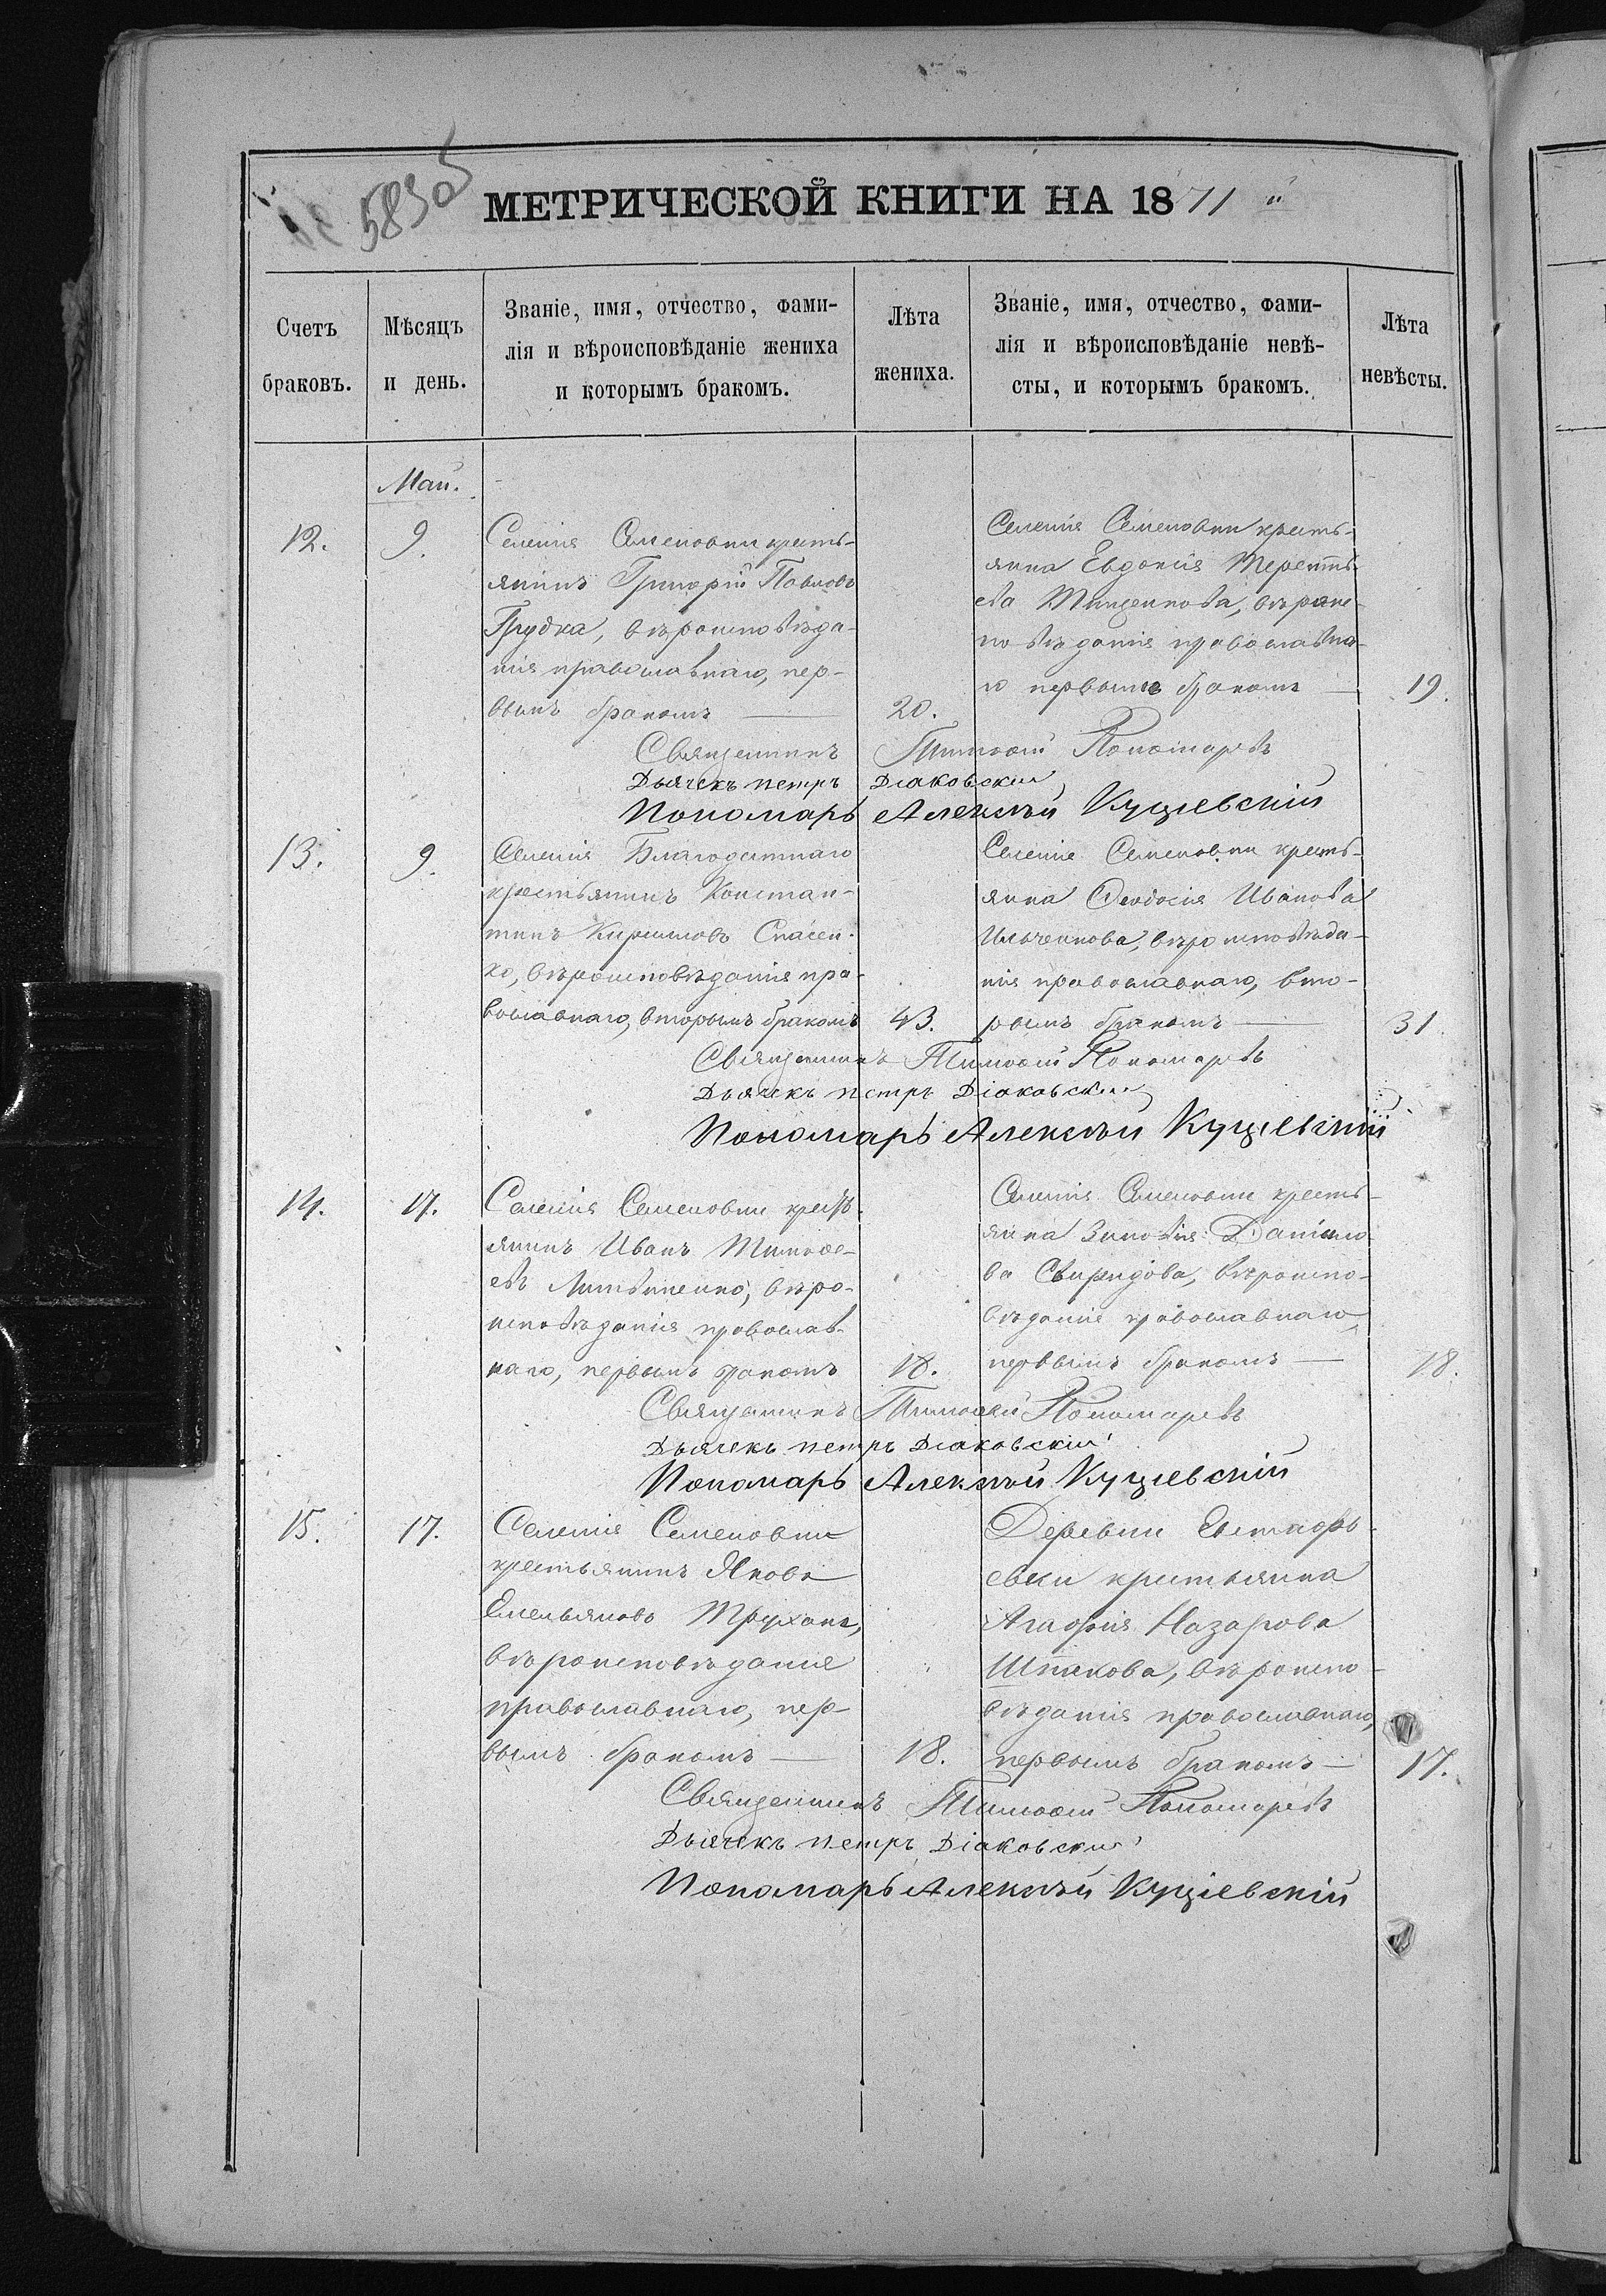 583об
МЕТРИЧЕСКОЙ КНИГИ НА 1871
Счетъ браковъ.
Мѣсяцъ и день.
Званіе, имя, отчество, фами-
лія и вѣроисповѣданіе жениха
и которымъ бракомъ.
Лѣта жениха.
Званіе, имя, отчество, фами-
лія и вѣроисповѣданіе невѣ-
сты, и которымъ бракомъ.
Лѣта невѣсты.
Маи.
12.
9.
Селенія Семеновки кресть-
янинъ Григорій Павловъ
Грудка, вѣроисповѣда-
нія православнаго, пер-
вымъ бракомъ
20.
Селенія Семеновки кресть-
янка Евдокія Терентье-
ва Тищенкова, вѣроис-
повѣданія православна-
го первымъ бракомъ
19.
Священникъ Тимофей Пономаревъ
Дьячекъ петръ Діаковскій
Пономарь Алексѣй Кущевскій
13.
9.
Селенія Благодатнаго
крестьянинъ Констан-
тинъ Кириловъ Спасен-
ко, вѣроисповѣданія пра-
вославнаго, вторымъ бракомъ
43.
Селенія Семеновки кресть-
янка Ѳеодосія Иванова
Ильченкова, вѣроисповѣда-
нія православнаго, вто-
рымъ бракомъ
31
Священникъ Тимофей Пономаревъ
Дьячекъ петръ Діаковскій
Пономарь Алексѣй Кущевскій
14.
17.
Селенія Семеновки кресть-
янинъ Иванъ Тимофе-
евъ Литвиненко, вѣро-
исповѣданія православ-
наго, первымъ бракомъ
18.
Селенія Семеновки кресть-
янка Зиновія Данило-
ва Свиридова, вѣроиспо-
вѣданія православнаго,
первымъ бракомъ
18.
Священникъ Тимофей Пономаревъ
Дьячекъ петръ Діаковскій
Пономарь Алексѣй Кущевскій
15.
17.
Селенія Семеновки
крестьянинъ Яковъ
Емельяновъ Труханъ,
вѣроисповѣданія
православнаго, пер-
вымъ бракомъ
18.
Деревни
крестьянка
Агафія Назарова
вѣроиспо-
вѣданія православнаго,
первымъ бракомъ
17.
Священникъ Тимофей Пономаревъ
Дьячекъ петръ Діаковскій
Пономарь Алексѣй Кущевскій